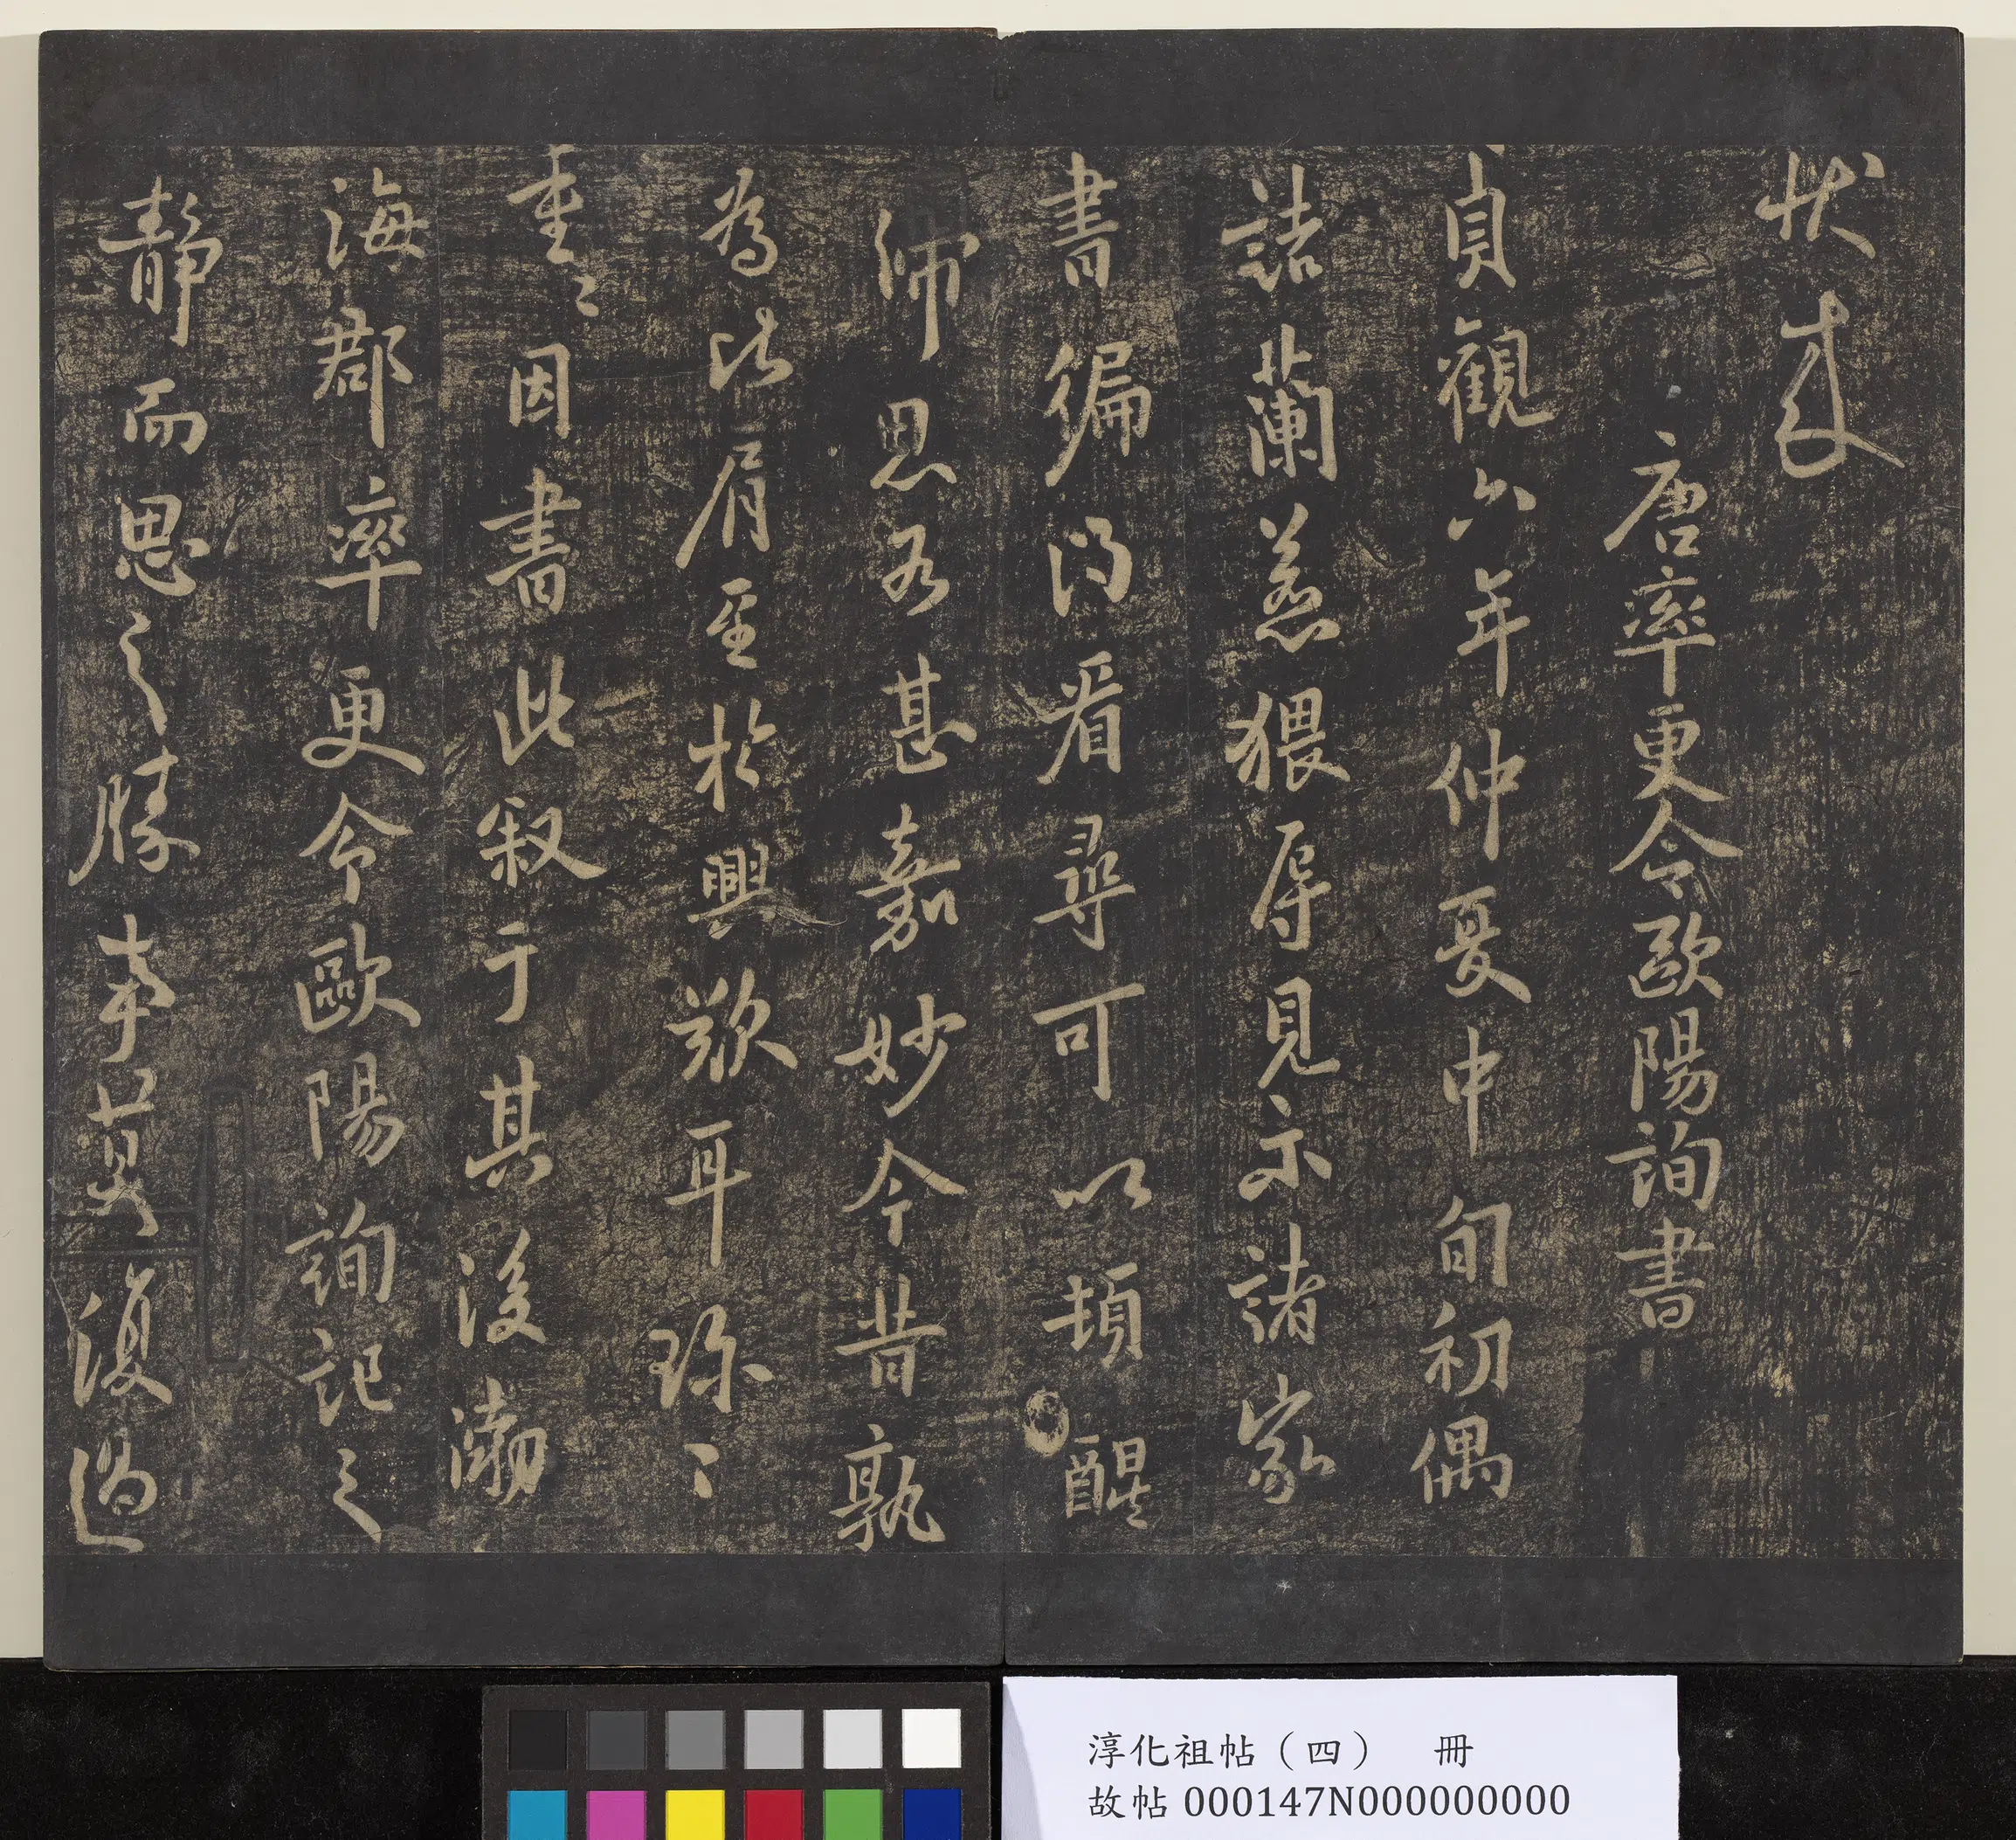 唐率更令歐陽詢書
貞觀六年仲夏中旬初偶
詣蘭惹猥辱見示諸家
書徧得看尋可以頓醒
師思吝甚嘉妙今昔孰
為比肩至於興歎耳珍〻
重〻因書此叙于其後渤
海郡率更令歐陽詢記之
靜而思之勝事莫復過
淳化祖帖（四）　冊
故帖 000147N000000000